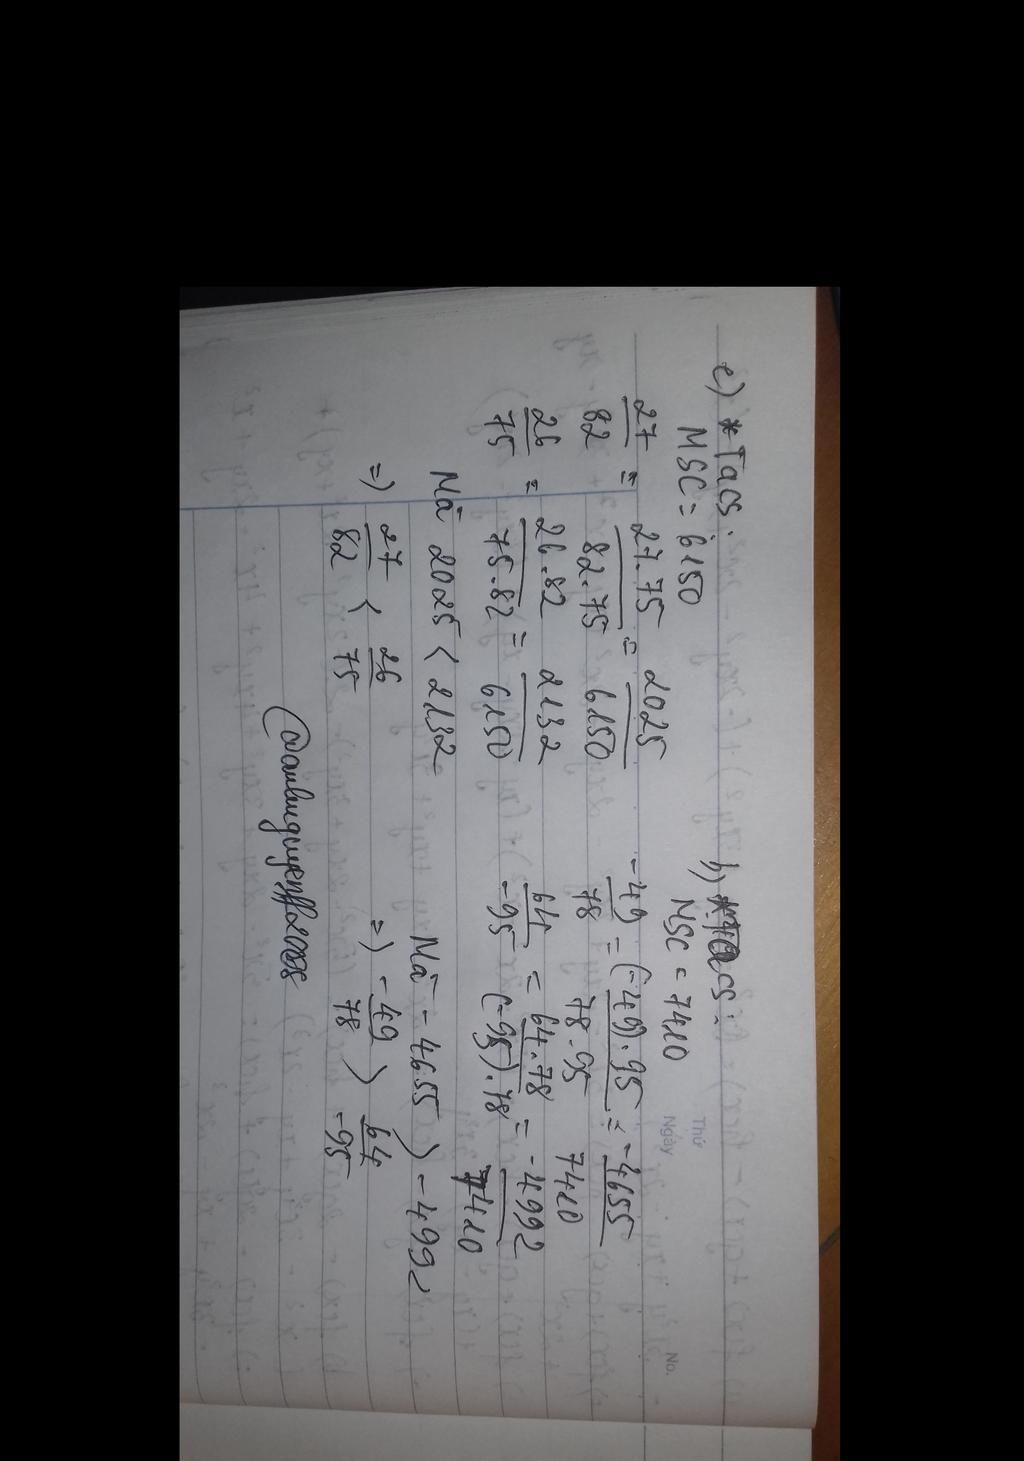 e) * Ta có:
MSC = 6150
27/82 = 27.75/82.75 = 2025/6150
26/75 = 26.82/75.82 = 2132/6150
Mà 2025 < 2132
=> 27/82 < 26/75
h) * Ta có:
MSC = 7410
-49/78 = (-49).95/78.95 = -4655/7410
64/-95 = 64.78/(-95).78 = -4992/7410
Mà -4655 > -4992
=> -49/78 > 64/-95
Thứ
Ngày
No.